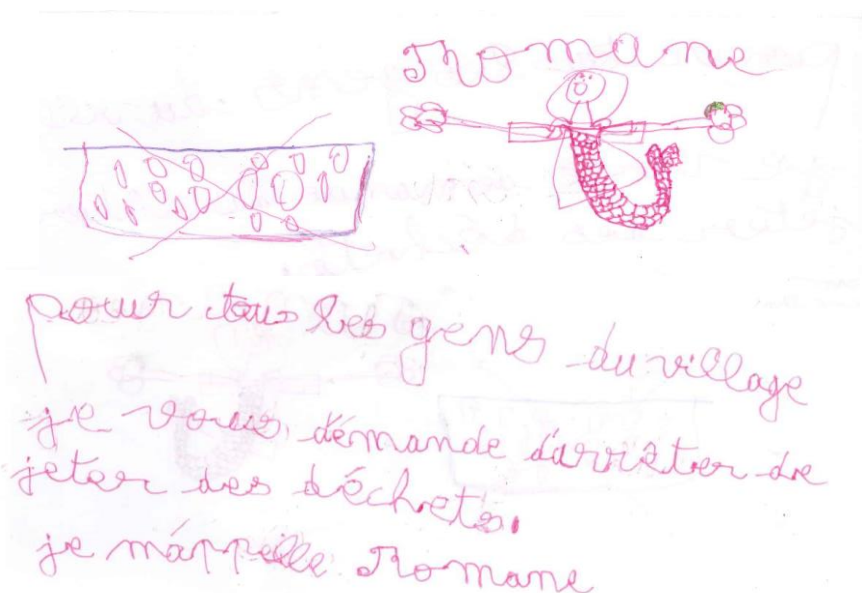 Romane
pour tous les gens du village
je vous demande d'arrêter de
jeter des déchets.
je m'appelle Romane